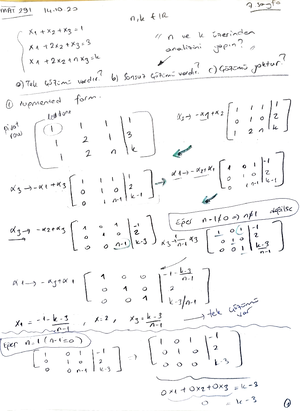 MAT 291 14.10.20
2. sayfa
n, k ∈ IR
x1 + x2 + x3 = 1
x1 + 2x2 + x3 = 3
x1 + x2 + nx3 = k
" n ve k üzerinden analizini yapın? "
a) Tek çözümü vardır? b) Sonsuz çözümü vardır. c) Çözümü yoktur?
Augmented form:
pivot row
1 1 1 | 1
1 2 1 | 3
1 2 n | k
x2 → -x1+x2
1 1 1 | 1
0 1 0 | 2
1 2 n | k
x3 → -x1+x3
1 1 1 | 1
0 1 0 | 2
0 1 n-1 | k-1
x1 → -x2+x1
1 0 1 | -1
0 1 0 | 2
0 1 n-1 | k-1
x3 → -x2+x3
1 0 1 | -1
0 1 0 | 2
0 0 n-1 | k-3
Eğer n-1≠0 ⇒ n≠1 değilse
1 0 1 | -1
0 1 0 | 2
0 0 1 | k-3/n-1
x1 → -x3+x1
1 0 0 | -1 - k-3/n-1
0 1 0 | 2
0 0 1 | k-3/n-1
x1 = -1 - k-3/n-1, x2 = 2, x3 = k-3/n-1 → tek çözümü var
Eğer n=1 (n-1=0)
1 0 1 | -1
0 1 0 | 2
0 0 n-1 | k-3
⇒
1 0 1 | -1
0 1 0 | 2
0 0 0 | k-3
0x1 + 0x2 + 0x3 = k-3
0 = k-3